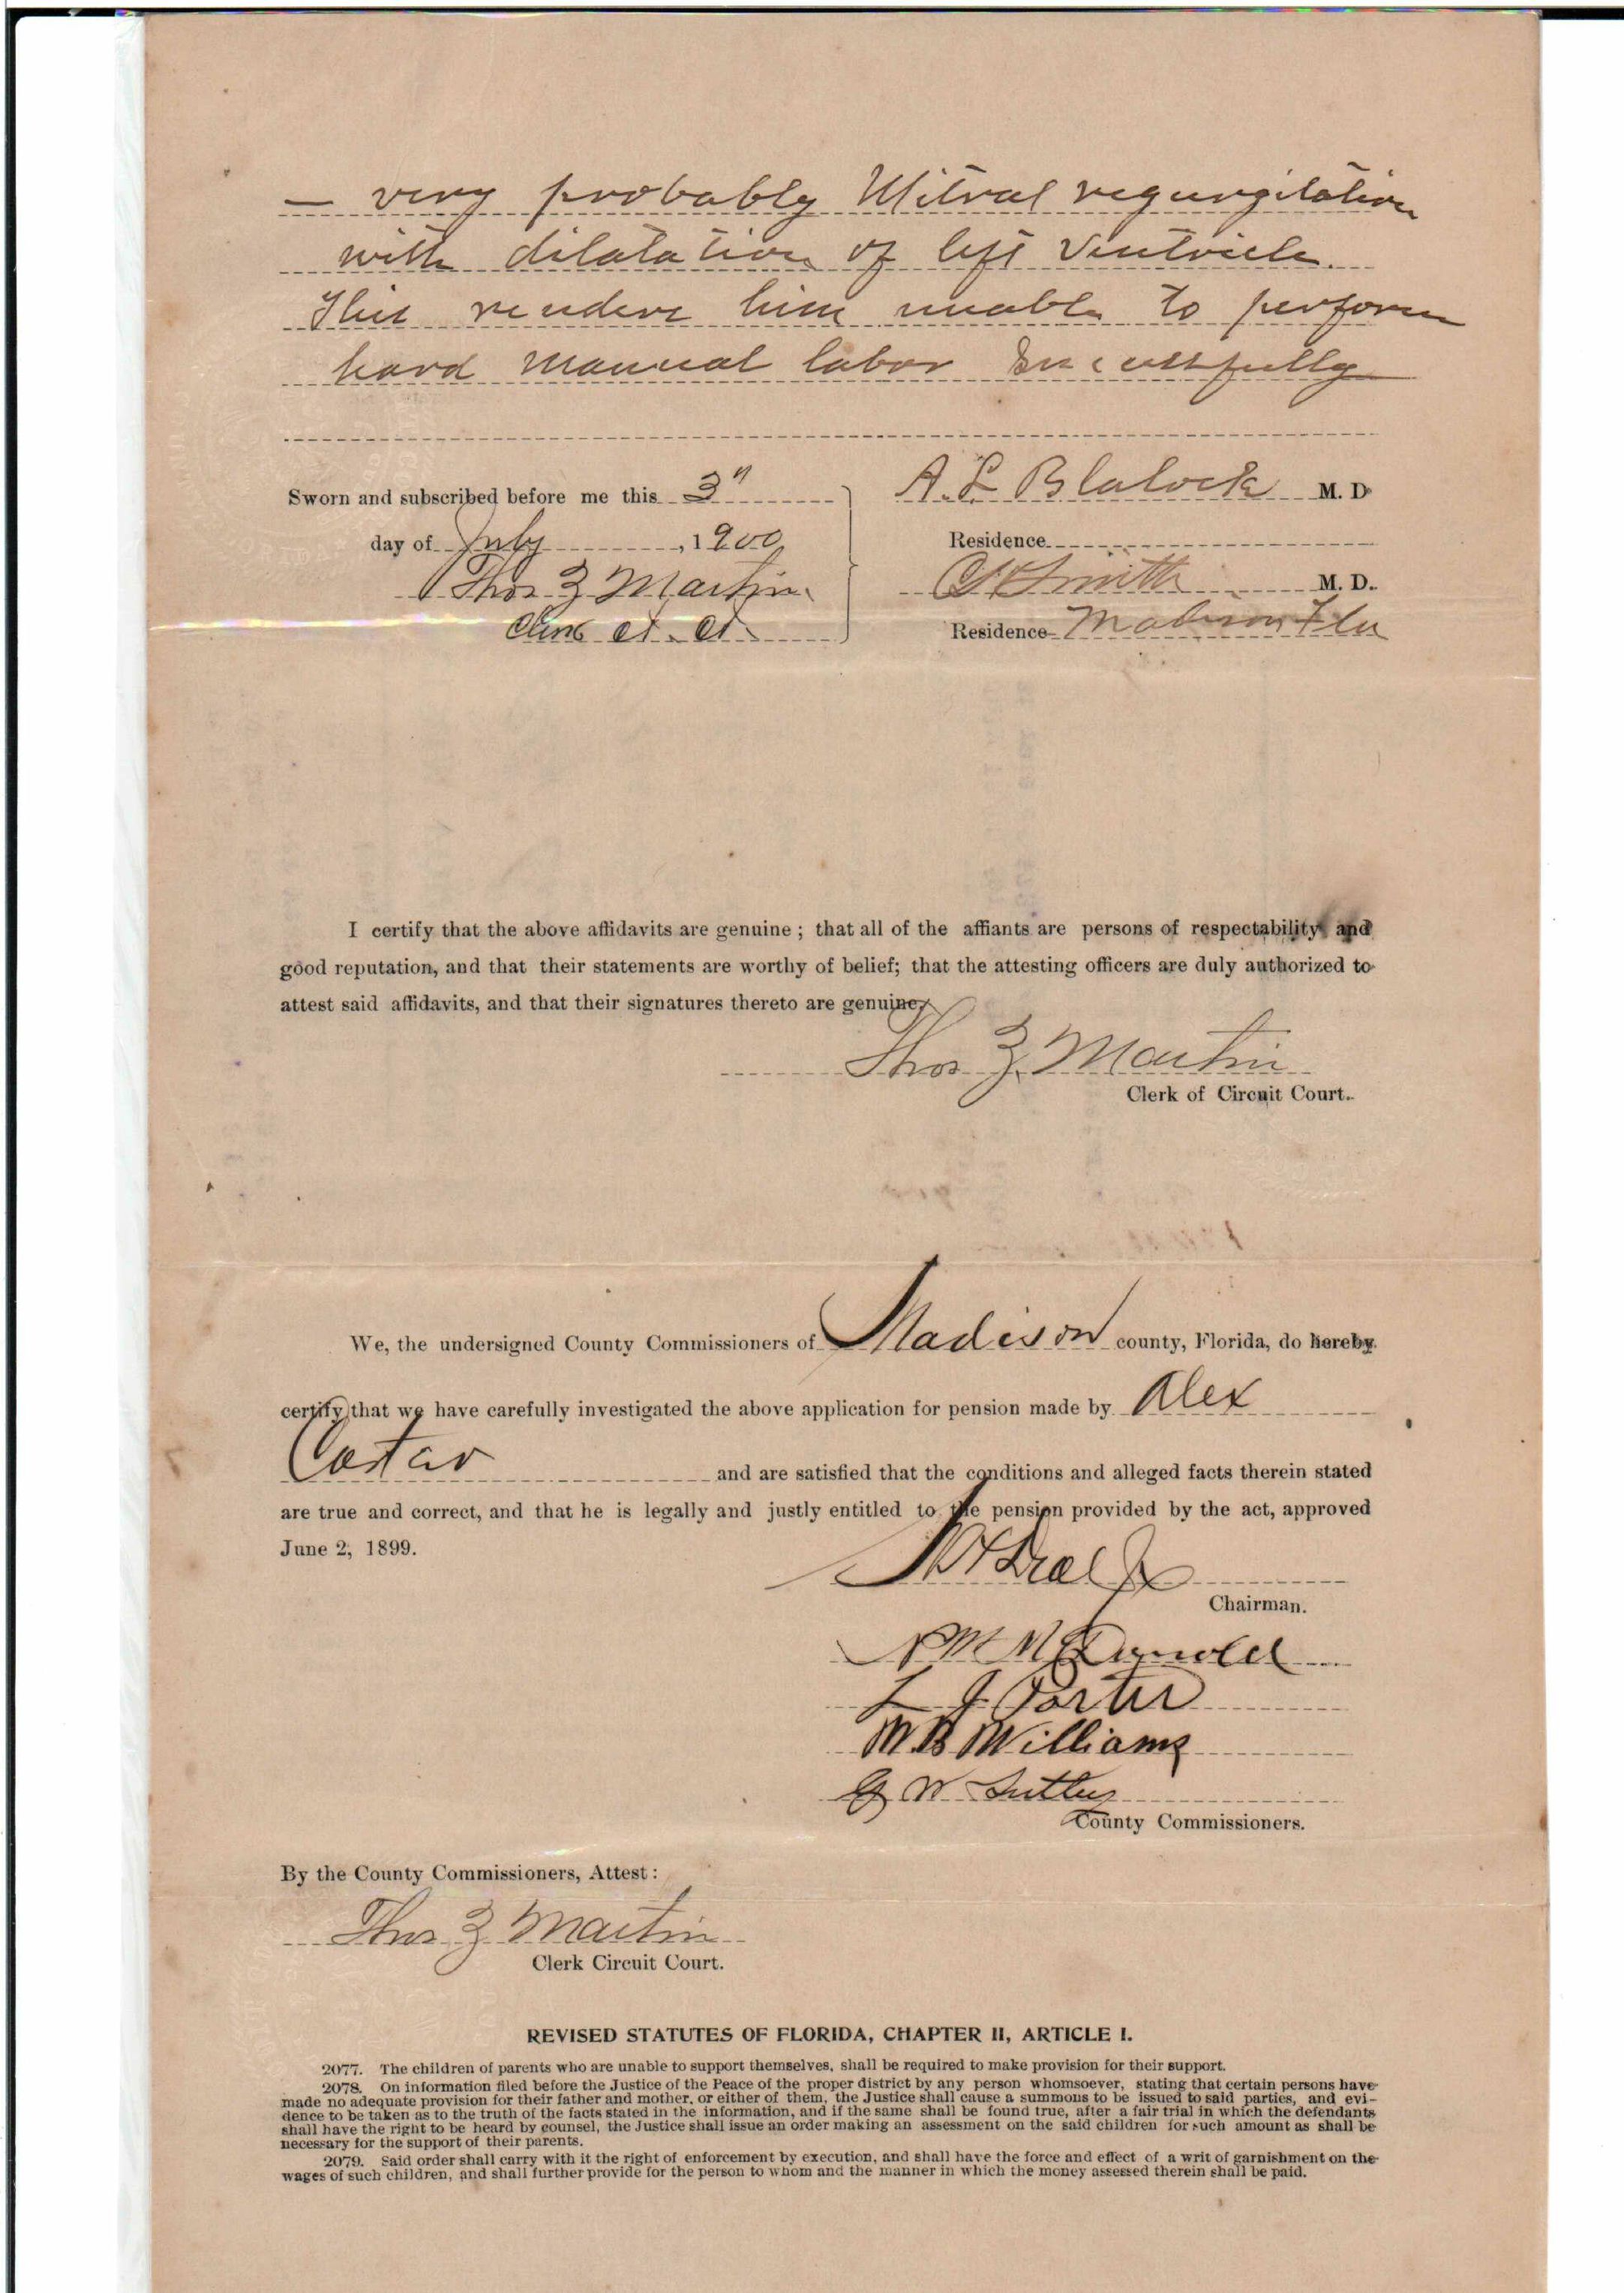 — very probably Mitral regurgitation
with dilatation of left Ventricle.
This renders him unable to perform
hard manual labor successfully
Sworn and subscribed before me this 3"
day of July, 1900
Thos Z Martin
Clerk Ct. Ct.
A. L Blalock M. D
Residence
Smith M. D.
Residence Madison Fla
I certify that the above affidavits are genuine; that all of the affiants are persons of respectability and
good reputation, and that their statements are worthy of belief; that the attesting officers are duly authorized to
attest said affidavits, and that their signatures thereto are genuine.
Thos Z. Martin
Clerk of Circuit Court.
We, the undersigned County Commissioners of Madison county, Florida, do hereby
certify that we have carefully investigated the above application for pension made by Alex
Costar and are satisfied that the conditions and alleged facts therein stated
are true and correct, and that he is legally and justly entitled to the pension provided by the act, approved
June 2, 1899.
Chairman.
L J Porter
M. B Williams
G W
County Commissioners.
By the County Commissioners, Attest:
Thos Z Martin
Clerk Circuit Court.
REVISED STATUTES OF FLORIDA, CHAPTER II, ARTICLE I.
2077. The children of parents who are unable to support themselves, shall be required to make provision for their support.
2078. On information filed before the Justice of the Peace of the proper district by any person whomsoever, stating that certain persons have
made no adequate provision for their father and mother, or either of them, the Justice shall cause a summons to be issued to said parties, and evi-
dence to be taken as to the truth of the facts stated in the information, and if the same shall be found true, after a fair trial in which the defendants
shall have the right to be heard by counsel, the Justice shall issue an order making an assessment on the said children for such amount as shall be
necessary for the support of their parents.
2079. Said order shall carry with it the right of enforcement by execution, and shall have the force and effect of a writ of garnishment on the
wages of such children, and shall further provide for the person to whom and the manner in which the money assessed therein shall be paid.